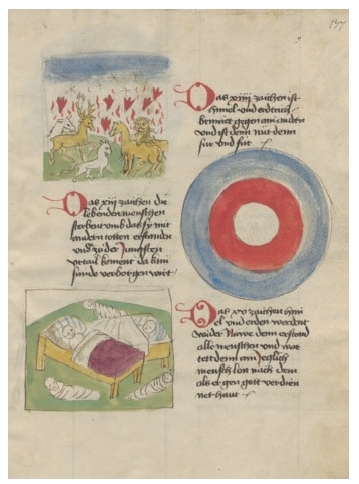 Das xiiij zaichen ist
himel und erdtrich
brinnet gegen ain anden
und ist denn nut denn
für und für
Das xiij zaichen die
lebenden menschen
sterbent umb das sy mit
andern totten erstanden
und zu der Jungsten
urtail koment da kain
sünde verborgen wirt
Das xv zaichen himi
el und erden werdent
wider Nüwe denn erstand
alle menschen und
denn am Jeglich
mensch lon nach dem
als er gen gott verdien
net haut